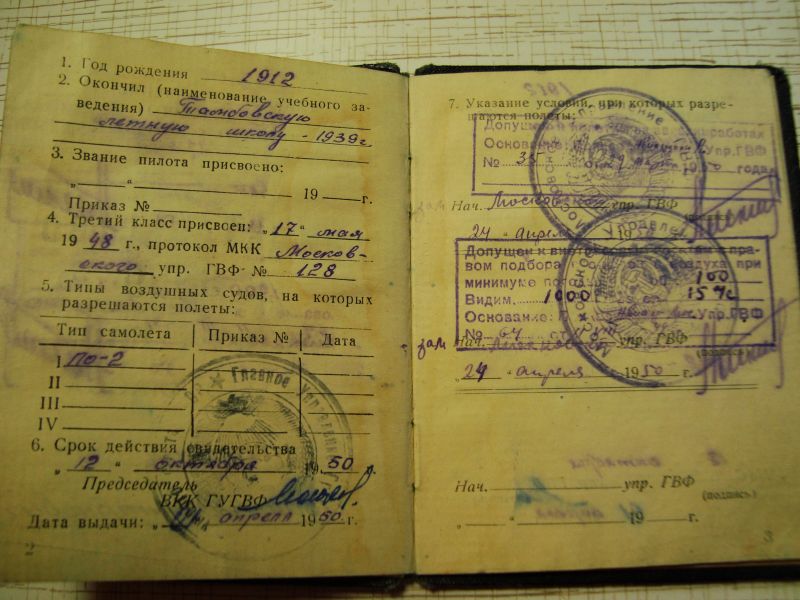 1. Год рождения 1912
2. Окончил (наименование учебного за-
ведения) Тамбовскую
летную школу - 1939г
3. Звание пилота присвоено:
„ “ 19 г.
Приказ №
4. Третий класс присвоен: „17“ мая
1948 г., протокол МКК Москов-
ского упр. ГВФ № 128
5. Типы воздушных судов, на которых
разрешаются полеты:
Тип самолета Приказ № Дата
I ПО-2
II
III
IV
6. Срок действия свидетельства
„12“ октября 1950 г.
Председатель
ВКК ГУГВФ
Дата выдачи: „ “ апреля 1950 г.
2
Главное Управление
7. Указание условий, при которых разре-
шаются полеты:
Допущен к
Основание: Упр.ГВФ
№ 35 1950 года
зам Нач. Московского упр. ГВФ
(подпись)
24 апреля 1950
Допущен к
вом подбора с воздуха при
минимуме 100
Видим. 1000
Основание: Упр.ГВФ
№ 64
зам Нач. упр. ГВФ
(подпись)
„24“ апреля 1950 г.
Нач. упр. ГВФ
(подпись)
„ “ 19 г.
3